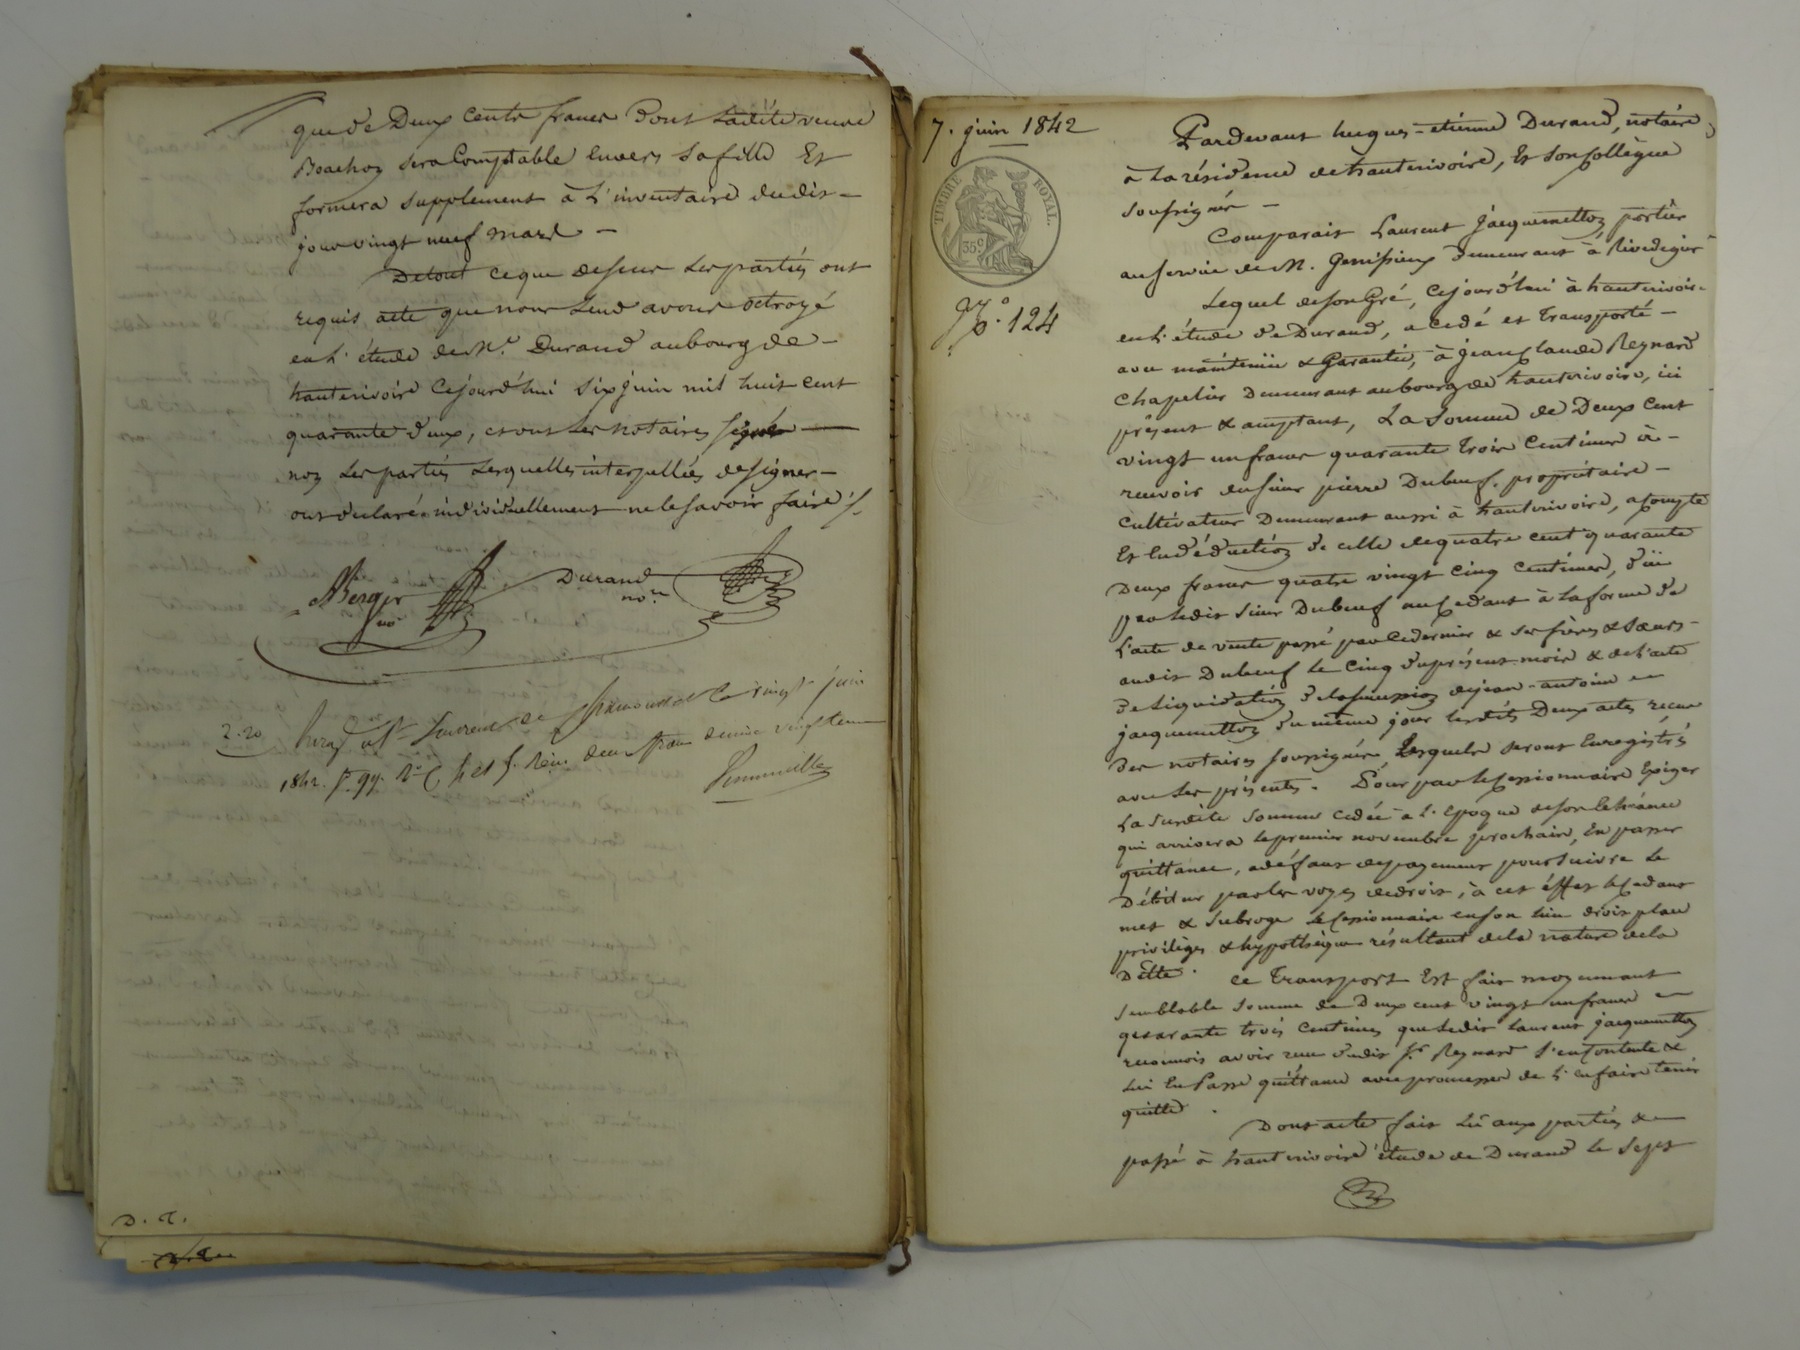 que de Deux Cents francs Dont Ladite veuve
sera Comptable Envers sa fille Et
formera supplément à L'inventaire dudit
jour vingt neuf Mars
De tout ce que dessus Les parties ont
requis acte que nous Leur avons octroyé
en L'étude de Me. Durand au bourg de
hauterivoire Cejourd'hui six juin mil huit cent
quarante Deux, et ont Les notaires signé
non Les parties Lesquelles interpellées de signer
ont declaré individuellement ne le savoir faire ./.
Berger
no
Durand
nore
2.20
St Laurent de Chamousset Le vingt juin
1842. fo 99. Ro C. et deux francs decime vingt cent
D. A.
7. juin 1842
TIMBRE ROYAL.
35c
No. 124
Pardevant hugues-etienne Durand, notaire
à La résidence de hauterivoire, Et Son Collègue
soussignés
Comparait Laurent Jacquemetton portier
au service de M. Genissieux Demeurant à Rivedegier
Lequel de son Gré, Cejourd'hui à hauterivoire
en L'étude de Durand, a Cédé et Transporté
avec maintenue & Garantie, à jean Claude Reynard
Chapelier Demeurant au bourg de hauterivoire, ici
présent & acceptant, La Somme de Deux Cent
vingt un francs quarante trois Centimes à
recevoir du sieur pierre Dubeuf. propriétaire
Cultivateur Demeurant aussi à hauterivoire, a Compte
Et En déduction de celle de quatre cent quarante
Deux francs quatre vingt Cinq Centimes, düe
par Ledit Sieur Dubeuf au Cédant à La forme de
L'acte de vente passé par Ce dernier & ses frères & Soeurs
audit Dubeuf le Cinq du présent mois & de L'acte
De Liquidation De la succession de jean-antoine
jacquemetton du même jour Lesdits Deux actes reçus
Des notaires soussignés, Lesquels seront Enregistrés
avec Les présentes. Pour par le Cessionnaire Exiger
La Susdite Somme cédée à L'Epoque de son Echéance
qui arrivera le premier novembre prochain, En passer
quittance, à défaut de payement poursuivre Le
Débiteur par les voyes de droit, à cet effet le Cédant
met & Subroge Le Cessionnaire en son Lieu droit place
privilèges & hypothèque résultant de la nature de la
Dette. Ce Transport Est fait moyennant
semblable Somme de Deux cent vingt un francs
quarante trois Centimes que Ledit Laurent jacquemetton
reconnois avoir reçu dudit Sr Reynard S'en Contente &
Lui En Passe quittance avec promesse de L'en faire tenir
quitte.
Dont acte fait Lû aux parties &
passé à hauterivoire étude de Durand Le Sept